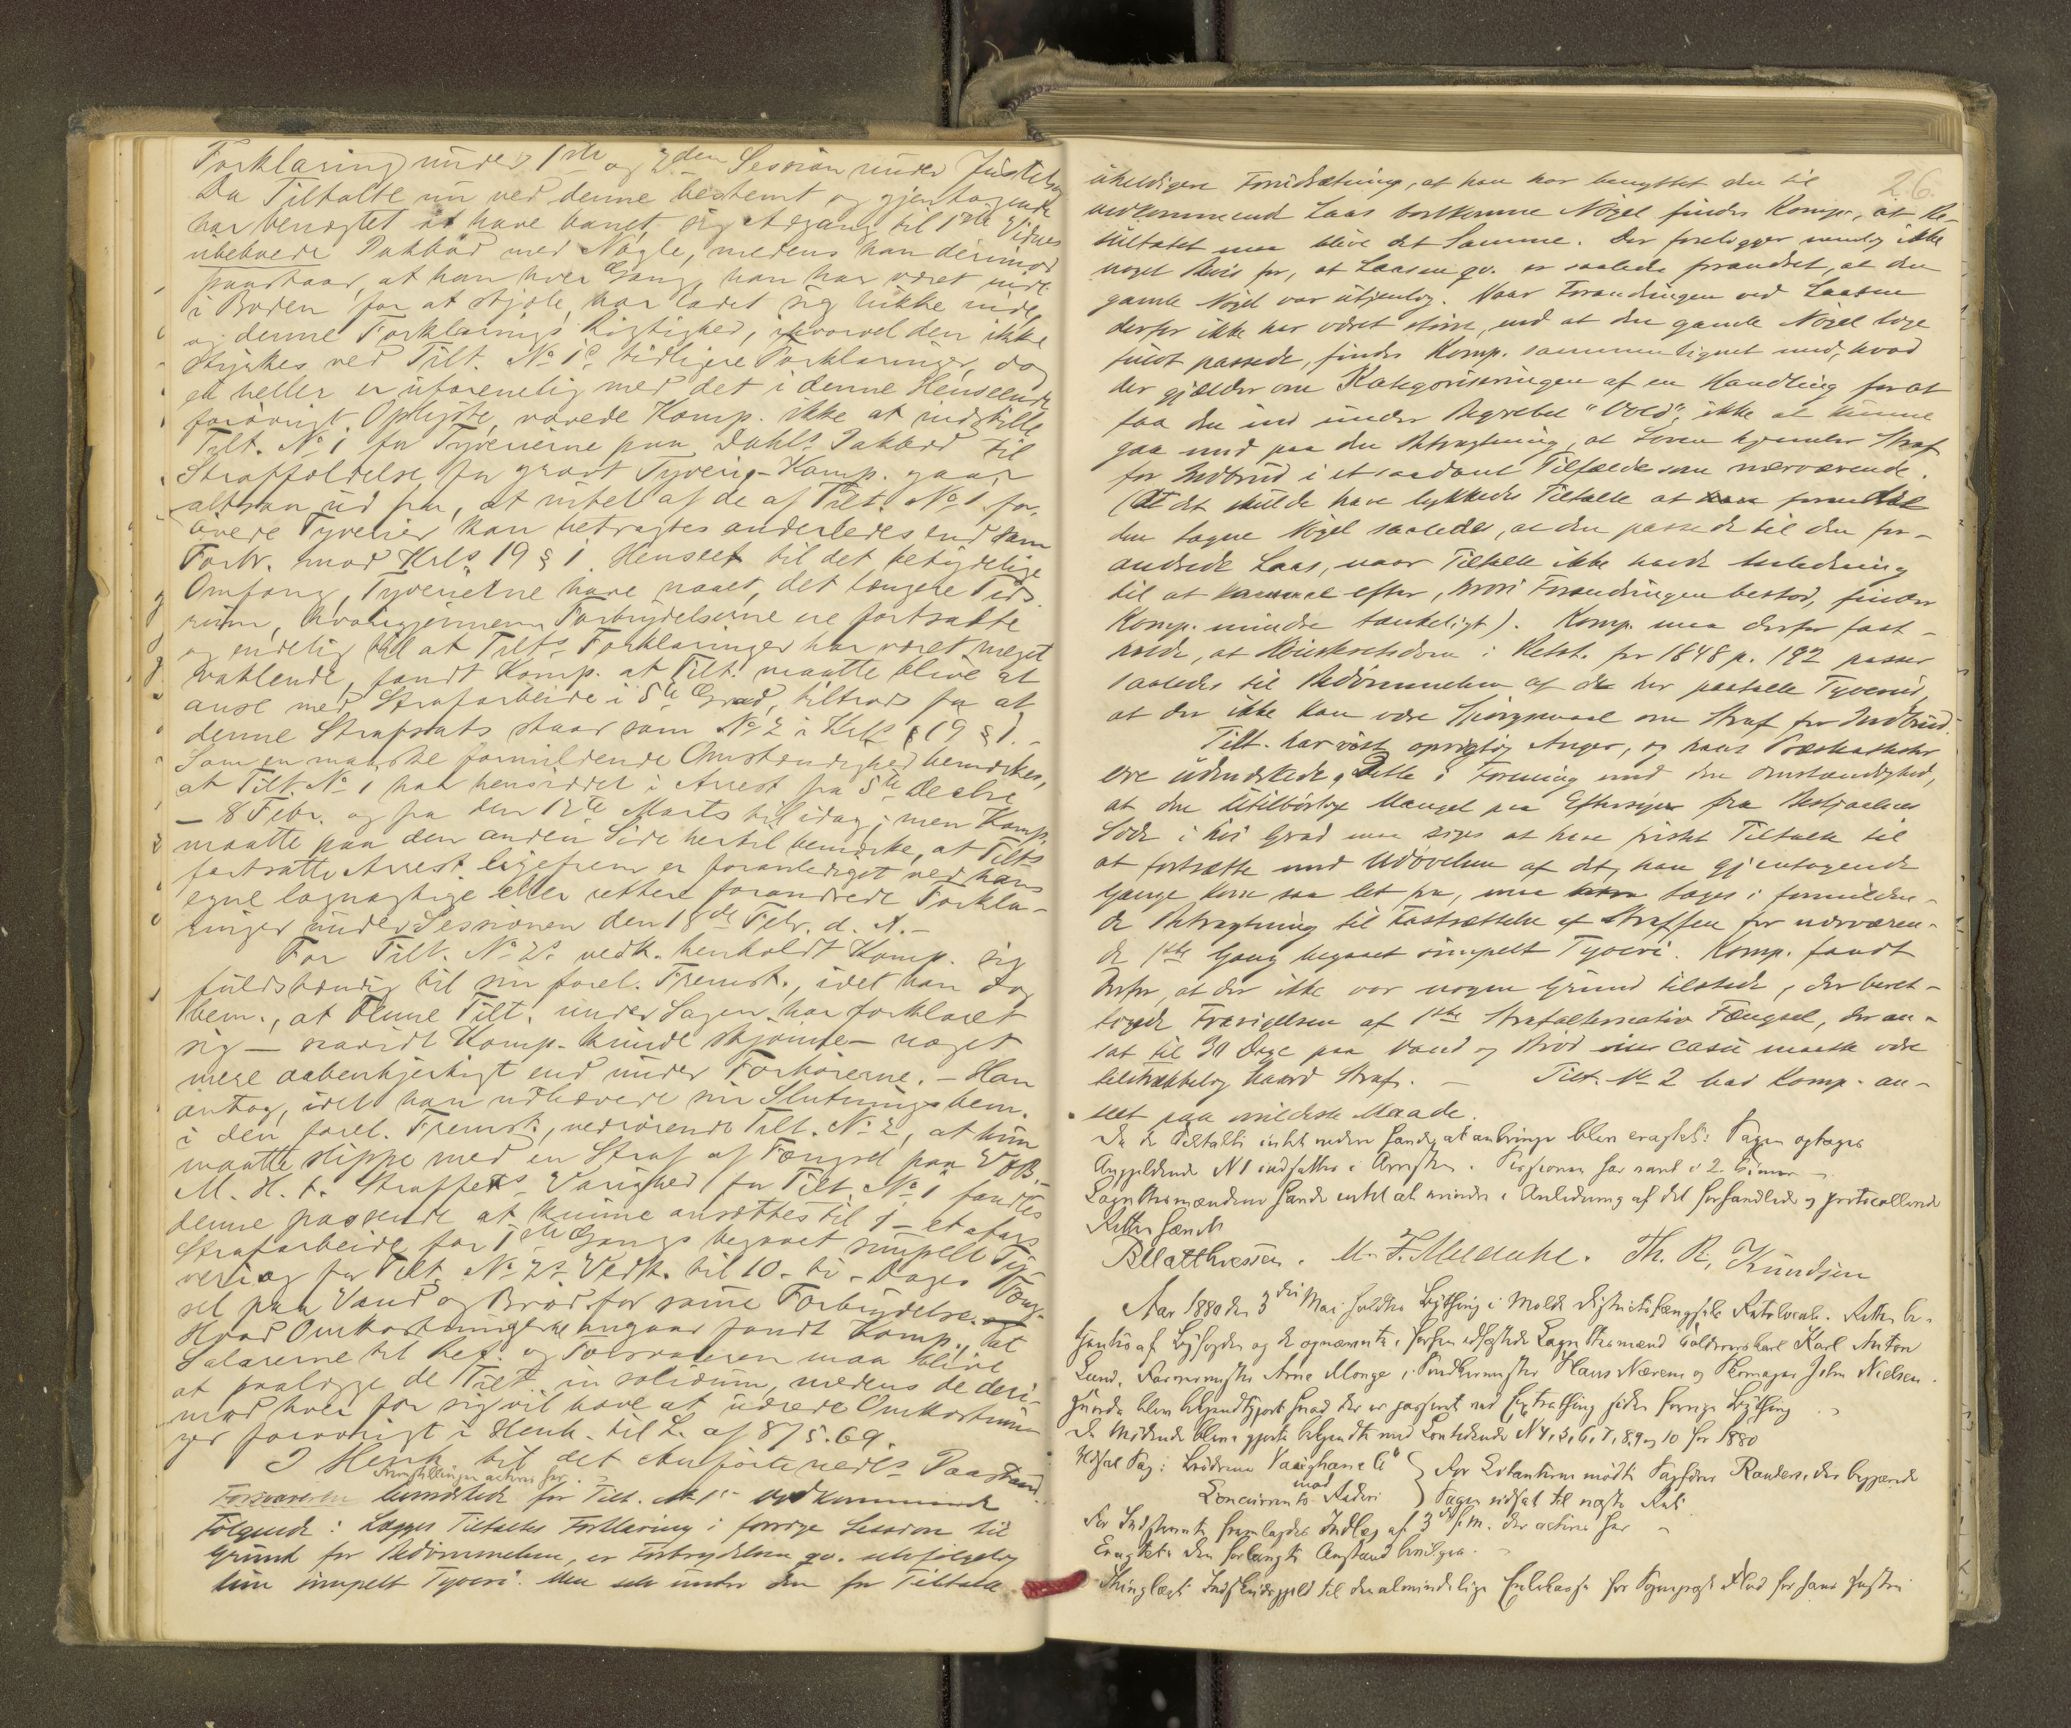 Forklaring under 1ste og 2den Session under Justits
Da Tiltalte nu ved denne bestemt og gjentagende
har benægtet at have banet sig Adgang til 1ste Vidnes
ubeboede Pakbod med Nøgle, medens han derimod
paastaar, at han hver Gang, han har været inde
i Boden for at stjæle, har ladet sig lukke inde,
og denne Forklarings Rigtighed, ihvorvel den ikke
styrkes ved Tilt. No 1s tidligere Forklaringer, dog
ei heller er uforenelig med det i denne Henseende
forøvrigt Oplyste, vovede Komp. ikke at indstille
Tilt. No 1 for Tyverierne paa Dahls Pakbod til
Strafføldelse for grovt Tyveri. Komp. gaar
altsaa ud fra, at intet af de af Tilt. No 1 for-
øvede Tyverier kan betragtes anderledes end som
Forbr. mod Krls 19 § 1. Henseet til det betydelige
Omfang, Tyverierne have naaet, det længere Tids-
rum, hvorigjennem Forbrydelserne ere fortsatte
og endelig til at Tilts Forklaringer har været meget
vaklende, fandt Komp. at Tilt. maatte blive at
anse med Strafarbeide i 5te Grad, tiltrods for at
denne Strafsats staar som No 2 i Krls 19 § 1. –
Som en maaske formildende Omstændighed bemærkes,
at Tilt. No 1 har hensiddet i Arrest fra 5te Decbr
– 8 Febr. og fra den 12te Marts til idag; men Komp.
maatte paa den anden Side hertil bemærke, at Tilts
fortsatte Arrest ligefrem er foranlediget ved hans
egne løgnagtige eller rettere forandrede Forkla-
ringer under Sessionen den 18de Febr. d. A. –
For Tilt. No 2s vedk. henholdt Komp. sig
fuldstændig til sin forel. Fremst., idet han dog
bem., at denne Tilt. under Sagen har forklaret
sig – saavidt Komp. kunde skjønne – noget
mere aabenhjertigt end under Forhørerne. – Han
antog, idet han udhævede sin Slutningsbem.
i den forel. Fremst., vedrørende Tilt. No 2, at hun
maatte slippe med en Straf af Fængsel paa V&B. –
M. H. t. Straffens Varighed for Tilt. No 1 fandtes
denne passende at kunne ansættes til 1 – et aars
Strafarbeide for 1ste Gangs begaaet simpelt Ty-
veri og for Tilt. No 2s Vedk. til 10 – ti – Dages Fæng-
sel paa Vand og Brød for samme Forbrydelse.
Hvad Omkostningerne angaar fandt Komp., at
Salarerne til Act. og Forsvareren maa blive
at paalægge de Tilt. in solidum, medens de deri-
mod hver for sig vil have at udrede Omkostnin-
ger forøvrigt i Henh. til L. af 8/5. 69.
I Henh. til det Anførte nedls Paastand.
Fremstillingen acteres saa
Forsvareren bemærkede for Tilt. No 1s Vedkommende
Følgende: Lægges Tiltaltes Forklaring i forrige Session til
Grund for Bedømmelsen, er Forbrydelsen qv. selvfølgelig
kun simpelt Tyveri. Men selv under den for Tiltalte
26.
uheldigere Forudsætning, at han har benyttet den til
vedkommende Laas bortkomne Nøgel findes Komp., at Re-
sultatet maa blive det Samme. Der foreligger nemlig ikke
noget Bevis for, at Laasen qv. er saaledes forandret, at den
gamle Nøgel var utjenlig. Naar Forandringen ved Laasen
derfor ikke har været større, end at den gamle Nøgel lige
fuldt passede, findes Komp. sammenlignet med, hvad
der gjælder om Kategoriseringen af en Handling for at
faa den ind under Begrebet "Vold", ikke at kunne
gaa med paa den Betragtning, at Loven hjemler Straf
for Indbrud i et saadant Tilfælde som nærværende.
(At det skulde have lykkedes Tiltalte at forandre
den tagne Nøgel saaledes, at den passede til den for-
andrede Laas, naar Tiltalte ikke havde Anledning
til at efter, hvori Forandringen bestod, finder
Komp. mindre tænkeligt). Komp. maa derfor fast-
holde, at Høiesteretsdom i Retst. for 1848 p. 192 passer
saaledes til Bedømmelsen af de her paatalte Tyverier,
at der ikke kan være Spørgsmaal om Straf for Indbrud.
Tilt. har vist oprigtig Anger, og hans Præsteattester
ere udmærkede, Dette i Forening med den Omstændighed,
at den utilbørlige Mangel paa Eftersyn fra Bestjaalnes
Side i høi Grad maa siges at have fristet Tiltalte til
at fortsætte med Udøvelsen af det, han gjentagende
Gange kom saa let fra, maa tages i formilden-
de Betragtning til Fastsættelse af Straffen for nærværen-
de 1ste Gang begaaet simpelt Tyveri. Komp. fandt
derfor, at der ikke var nogen Grund tilstede, der beret-
tigede Fravigelsen af 1ste Strafalternativ Fængsel, der an-
sat til 30 Dage paa Vand og Brød in casu maatte være
tilstrækkelig haard Straf. – Tilt. No 2 bad Komp. an-
seet paa mildeste Maade.
Da de Tiltalte intet videre havde at anbringe blev eragtet: Sagen optages
Angjeldende N 1 indsattes i Arresten. Sessionen har varet i 2 timer –
Lagrettesmændene havde intet at erindre i Anledning af det forhandlede og protocollerede
Retten hævet
B Matthiessen. M. F. Meldahl. Th. R. Knudsen
Aar 1880 den 3die Mai holdtes Bything i Molde Districtsfængsels Retslocale. Retten be-
tjentes af Byfogden og de opnævnte i Forhen edfæstede Lagrettesmænd Karl Anton
Lund, Arne Monge, Hans Nærem og John Nielsen.
Hvorda blev bekjendtgjort hvad der er passeret ved Extrathing siden forrige Bything –
De Mødende bleve gjorte bekjendte med Lovtidende N 4, 5, 6, 7, 8, 9 og 10 for 1880
Udsat Sag: Brødrene Vaughan & C } For Citanterne mødte Sagfører Randers, der begjærede
mod
Concurrents Rederi } Sagen udsat til næste Ret.
For Indstevnte fremlagdes Indlæg af 3d d. M. der acteres saa –
Eragtet: den forlangte Anstand bevilges. –
Thinglæst til den almindelige Enkekasse for